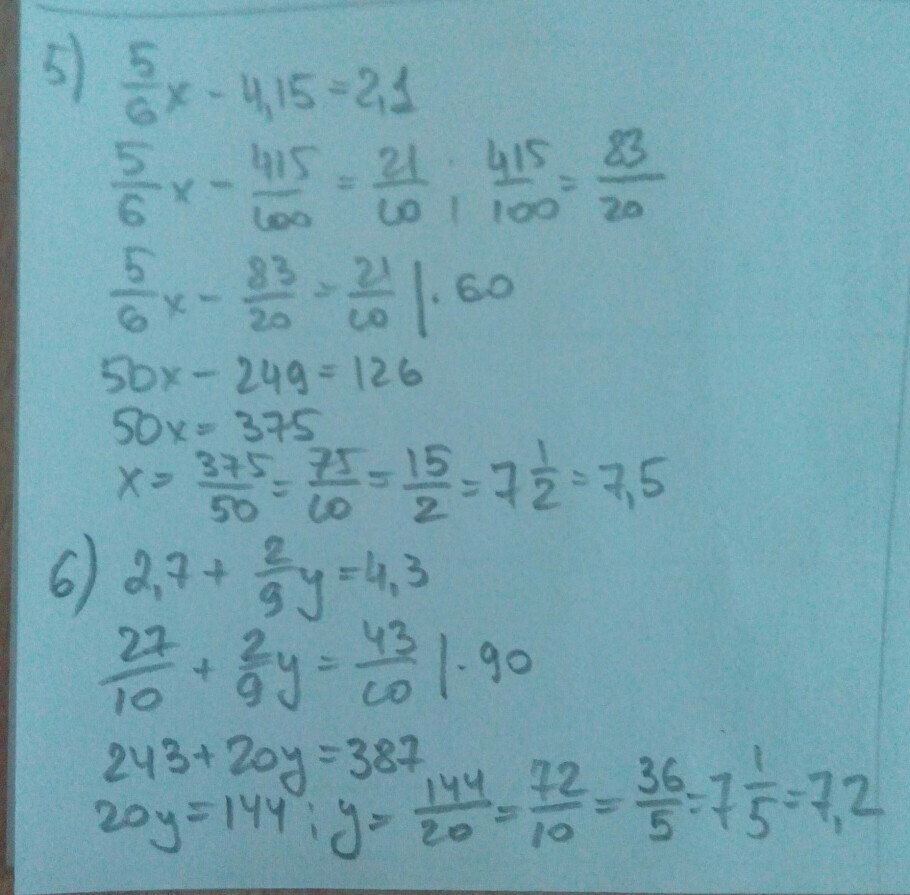 5) 5/6 x - 4,15 = 2,1
5/6 x - 415/100 = 21/10 ; 415/100 = 83/20
5/6 x - 83/20 = 21/10 | · 60
50x - 249 = 126
50x = 375
x = 375/50 = 75/10 = 15/2 = 7 1/2 = 7,5
6) 2,7 + 2/9 y = 4,3
27/10 + 2/9 y = 43/10 | · 90
243 + 20y = 387
20y = 144 ; y = 144/20 = 72/10 = 36/5 = 7 1/5 = 7,2